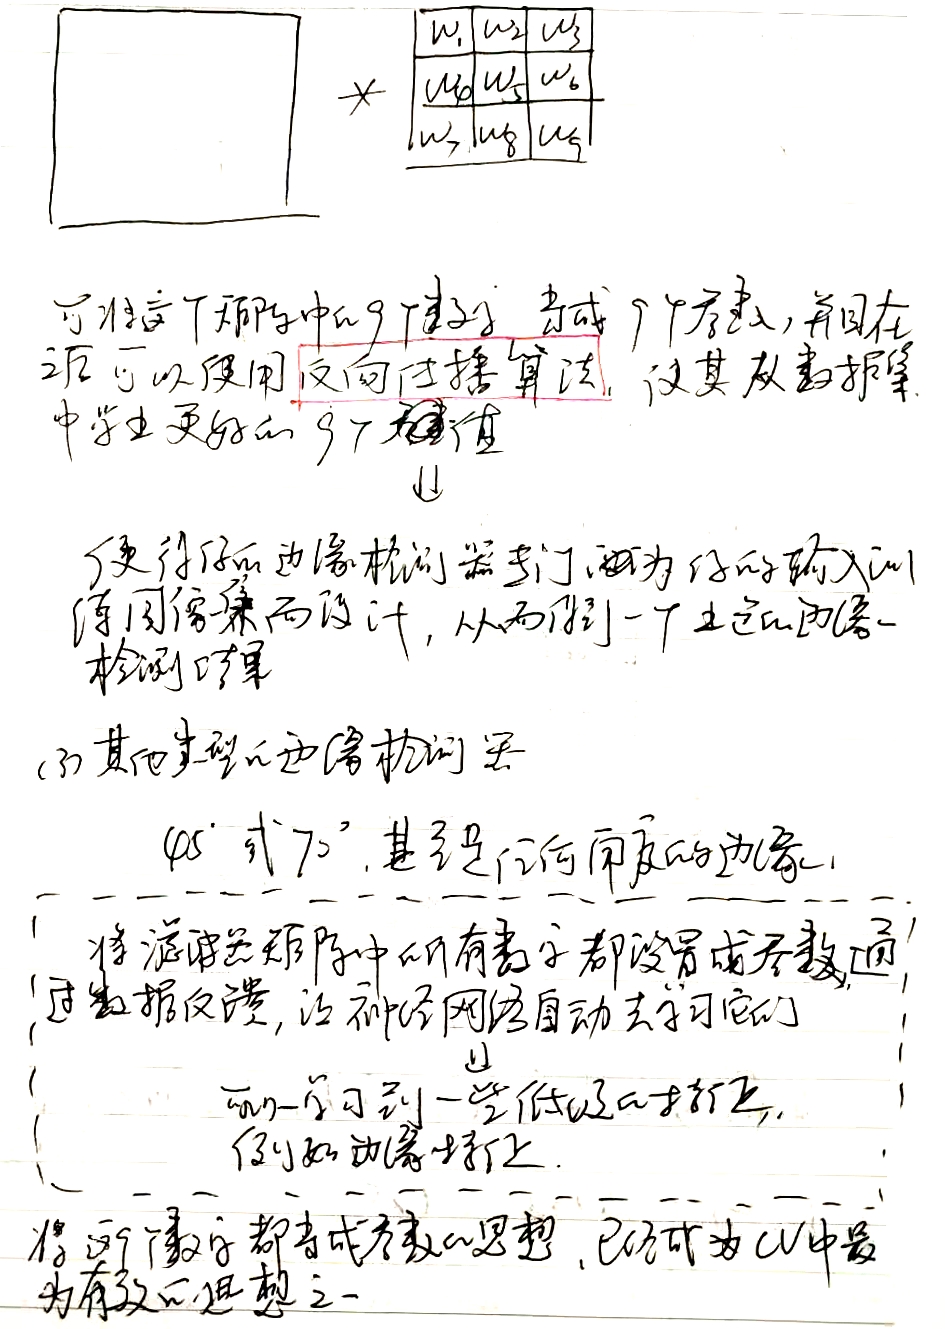 W1 W2 W3
* W4 W5 W6
W7 W8 W9
可将这个矩阵中的9个数字 当成 9个参数,并且在
之后可以使用反向传播算法,使其从数据集
中学出更好的9个 值
⇓
使得你的边缘检测器专门 为你的输入训
练图像集而设计,从而得到一个 的边缘
检测结果
(3) 其他类型的边缘检测器
45°或70°,甚至是任何角度的边缘.
将滤波器矩阵中的所有数字都设置成参数,通
过数据反馈,让神经网络自动去学习它们
⇓
可以学习到一些低级的特征,
例如边缘特征.
将这9个数字都当成参数的思想,已经成为CV中最
为有效的思想之一